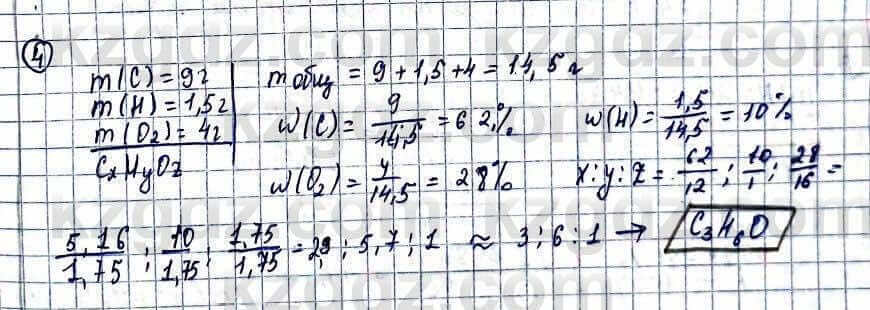 4
m(C) = 9г
m(H) = 1,5г
m(O₂) = 4г
CxHyOz
m общ = 9 + 1,5 + 4 = 14,5 г
w(C) = 9/14,5 = 62%
w(H) = 1,5/14,5 = 10%
w(O₂) = 4/14,5 = 28%
x : y : z = 62/12 ; 10/1 ; 28/16 =
5,16/1,75 ; 10/1,75 ; 1,75/1,75 = 2,9 ; 5,7 ; 1 ≈ 3 ; 6 : 1 → C₃H₆O
kzgdz.com